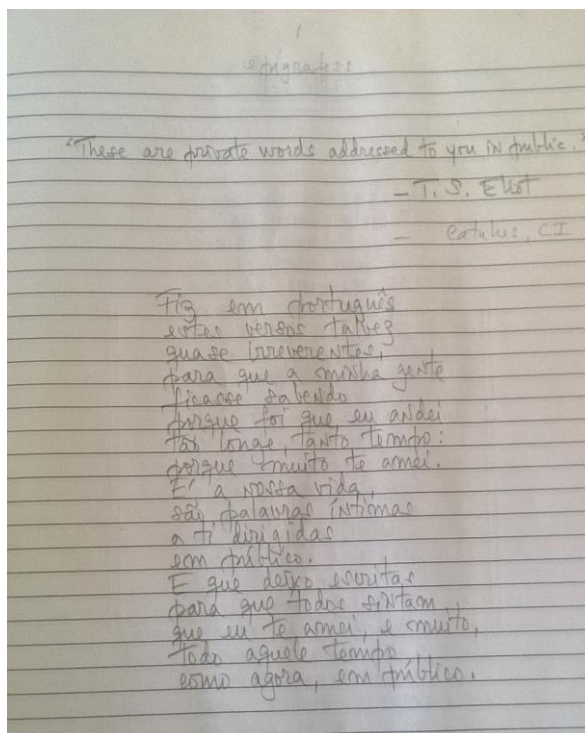 1
epígrafes:
"These are private words addressed to you in public."
– T. S. Eliot
– Catulus, CI
Fiz em português
estes versos talvez
quase irreverentes,
para que a minha gente
ficasse sabendo
porque foi que eu andei
tão longe, tanto tempo:
porque muito te amei.
É a nossa vida,
são palavras íntimas
a ti dirigidas
em público.
E que deixo escritas
para que todos sintam
que eu te amei, e muito,
todo aquele tempo
como agora, em público.